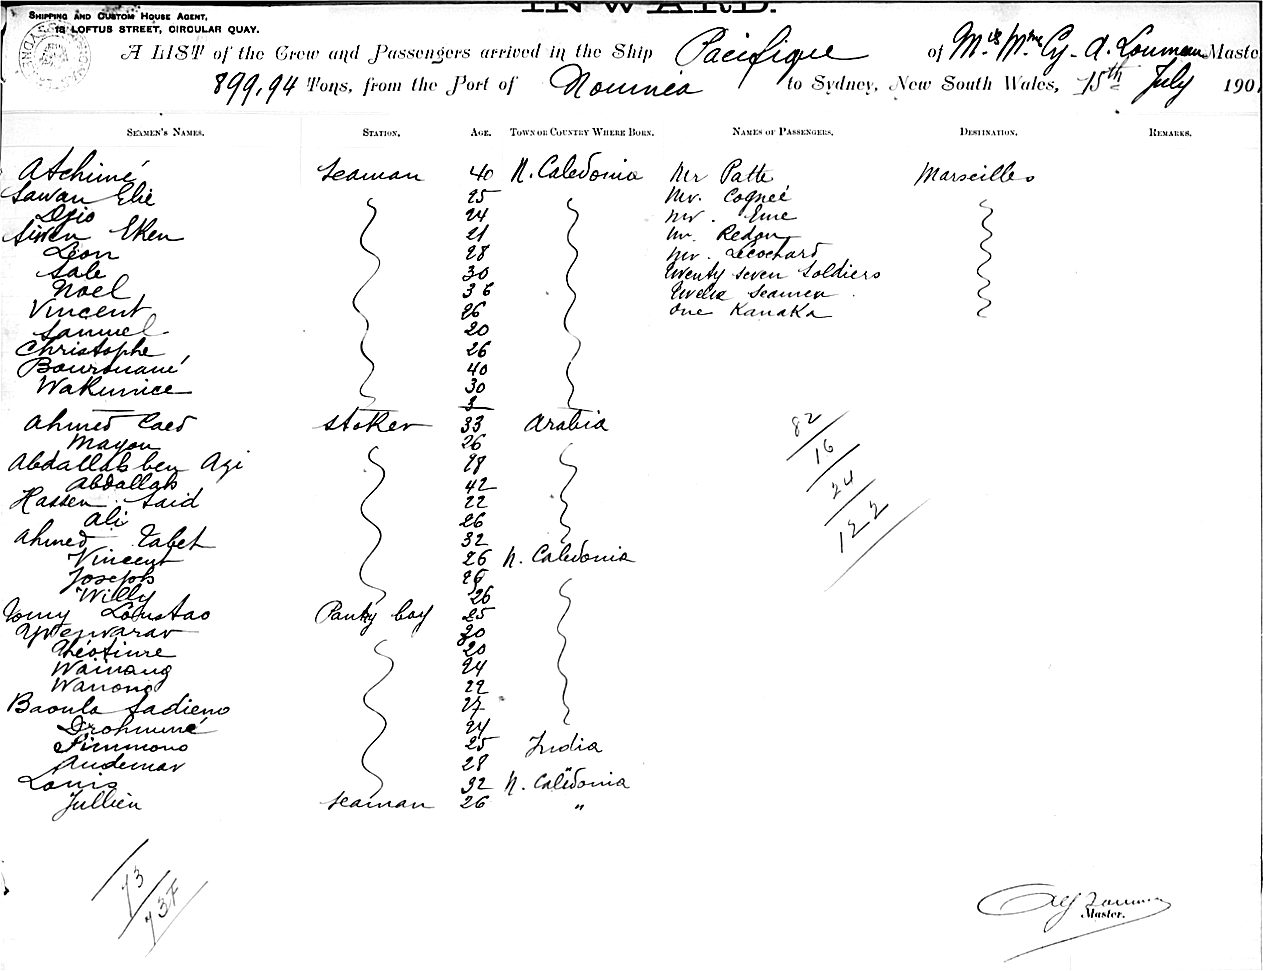 INWARD.
SHIPPING AND CUSTOM HOUSE AGENT,
18 LOFTUS STREET, CIRCULAR QUAY.
A LIST of the Crew and Passengers arrived in the Ship Pacifique of Master
899,94 Tons, from the Port of Noumea to Sydney, New South Wales, 15th July 190
SEAMEN'S NAMES. STATION. AGE. TOWN OR COUNTRY WHERE BORN. NAMES OF PASSENGERS. DESTINATION. REMARKS.
Atchimé seaman 40 N. Caledonia Mr Patte Marseilles
Sawan Elie 25 Mr. Cogneé
Djio 24 Mr. Eme
Siwen Eken 21 Mr. Redon
Léon 28 Mr. Lecochard
Sale 30 Twenty seven soldiers
Noel 36 Twelve seamen
Vincent 26 One Kanaka
Samuel 20
Christophe 26
Bourouaué 40
Wakunice 30
Ahmed Caed stoker 33 Arabia
Mayou 26
Abdallah ben Agi 28
Abdallah 42
Hassen Said 22
Ali 26
Ahmed Tabet 32
Vincent 26 N. Caledonia
Joseph 26
Willy 26
Tomy Loustao Panty boy 25
20
Théotime 20
Wainang 24
Wanono 22
Baoula Sadieno 27
Drohmmé 24
Simmons 25 India
Andemar 28
Louis 32 N. Caledonia
Jullien seaman 26 "
82
16
24
122
73
73F
Master.